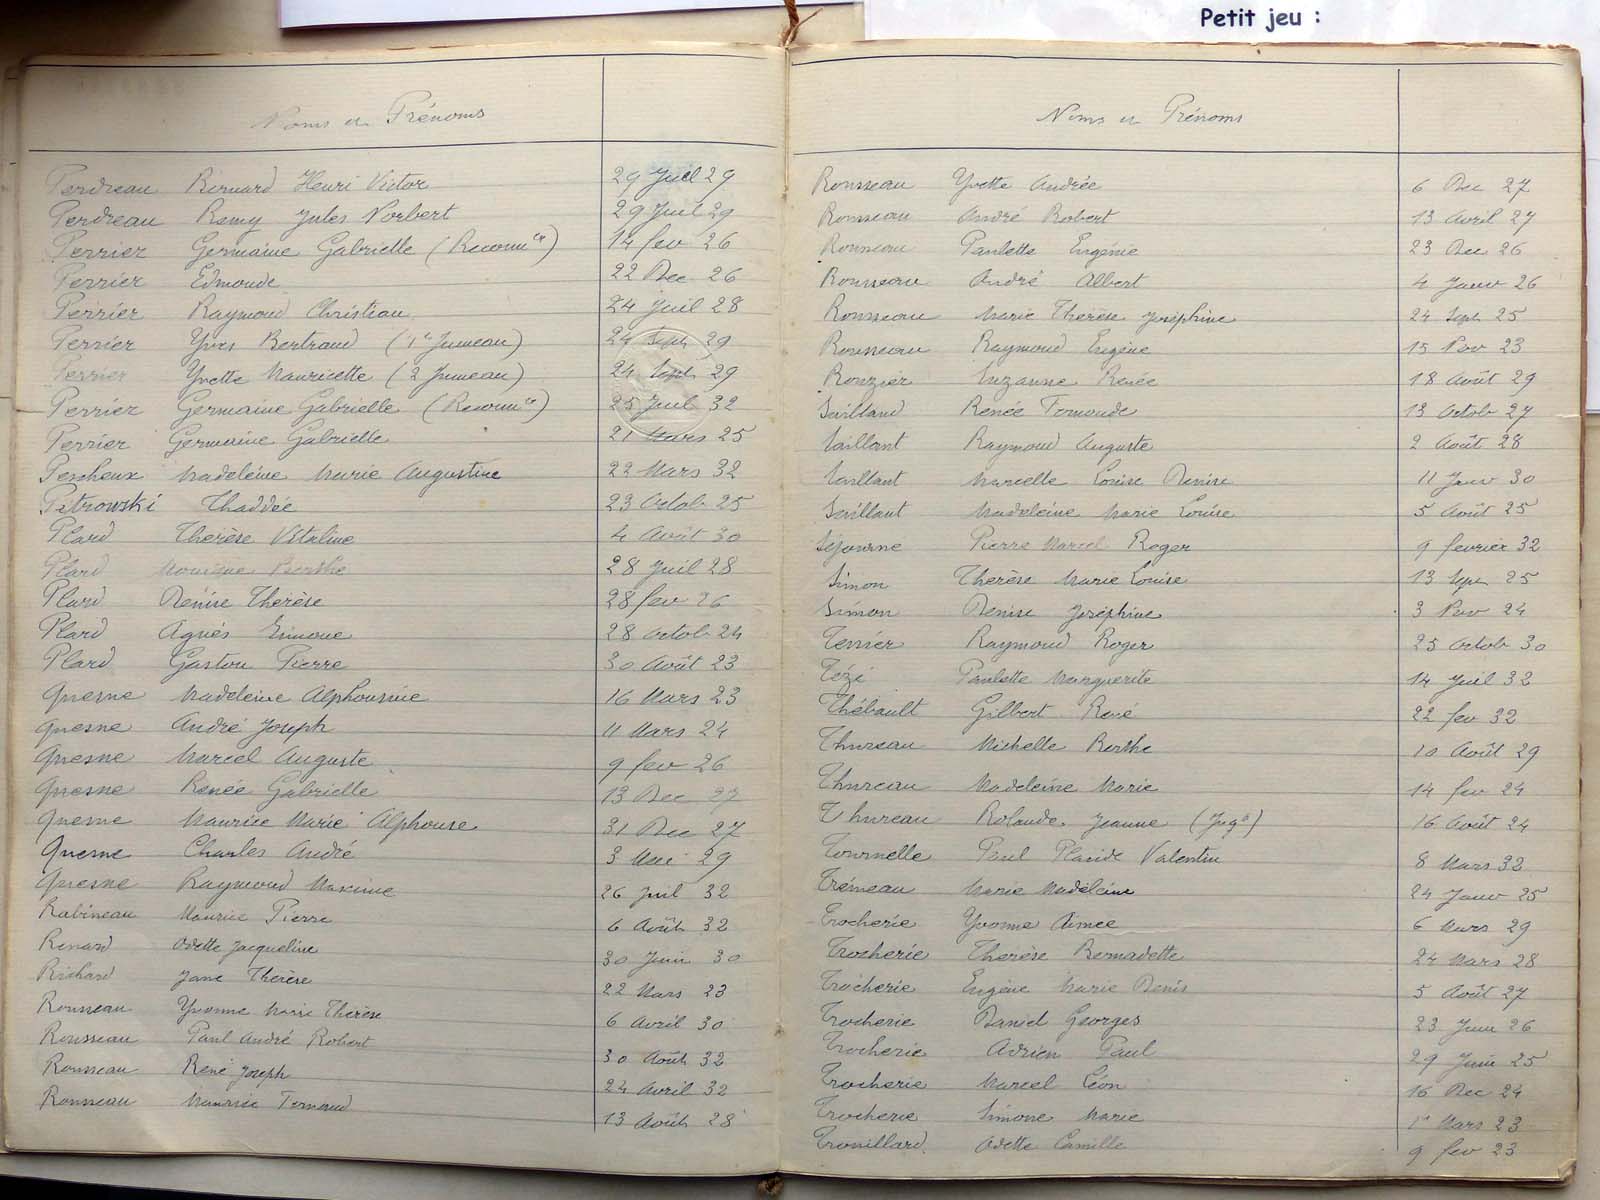 Petit jeu :
Noms et Prénoms
Perdreau Bernard Henri Victor 29 Juil 29
Perdreau Remy Jules Norbert 29 Juil 29
Perrier Germaine Gabrielle (Reconnce) 14 fev 26
Perrier Edmonde 22 Dec 26
Perrier Raymond Christian 24 Juil 28
Perrier Yves Bertrand (1er Jumeau) 24 Sept 29
Perrier Yvette Mauricette (2 Jumeau) 24 Sept 29
Perrier Germaine Gabrielle (Reconnce) 25 Juil 32
Perrier Germaine Gabrielle 21 Mars 25
Pescheux Madeleine Marie Augustine 22 Mars 32
Pitrowski Thaddée 23 Octob 25
Plard Therèse Vitaline 4 Août 30
Plard Monique Berthe 28 Juil 28
Plard Denise Therèse 28 fev 26
Plard Agnès Simone 28 Octob 24
Plard Gaston Pierre 30 Août 23
Quesne Madeleine Alphonsine 16 Mars 23
Quesne André Joseph 11 Mars 24
Quesne Marcel Auguste 9 fev 26
Quesne Renée Gabrielle 13 Dec 27
Quesne Maurice Marie Alphonse 31 Dec 27
Quesne Charles André 3 29
Quesne Raymond Maxime 26 Juil 32
Rabineau Maurice Pierre 6 Août 32
Renard Odette Jacqueline 30 Juin 30
Richard Jane Thérèse 22 Mars 23
Rousseau Yvonne Marie Thérèse 6 Avril 30
Rousseau Paul André Robert 30 Août 32
Rousseau René Joseph 24 Avril 32
Rousseau Maurice Fernand 13 Août 28
Noms et Prénoms
Rousseau Yvette Andrée 6 Dec 27
Rousseau André Robert 13 Avril 27
Rousseau Paulette Eugénie 23 Dec 26
Rousseau André Albert 4 Janv 26
Rousseau Marie Therèse Joséphine 24 Sept 25
Rousseau Raymond Eugène 15 Nov 23
Rouzier Suzanne Renée 18 Août 29
Sailland Renée Fernande 13 Octob 27
Saillant Raymond Auguste 2 Août 28
Saillant Marcelle Louise Denise 11 Janv 30
Saillant Madeleine Marie Louise 5 Août 25
Séjourne Pierre Marcel Roger 9 fevrier 32
Simon Therèse Marie Louise 13 Sept 25
Simon Denise Joséphine 3 Nov 24
Tessier Raymond Roger 25 Octob 30
Tézé Paulette Marguerite 14 Juil 32
Thébault Gilbert René 22 fev 32
Thureau Michelle Berthe 10 Août 29
Thureau Madeleine Marie 14 fev 24
Thureau Rolande Jeanne 16 Août 24
Tournelle Paul Placide Valentin 8 Mars 32
Trémeau Marie Madeleine 24 Janv 25
Trocherie Yvonne Aimee 6 Mars 29
Trocherie Therèse Bernadette 24 Mars 28
Trocherie Eugène Marie Denis 5 Août 27
Trocherie Daniel Georges 23 Juin 26
Trocherie Adrien Paul 29 Juin 25
Trocherie Marcel Léon 16 Dec 24
Trocherie Simone Marie 1er Mars 23
Trouillard Odette Camille 9 fev 23